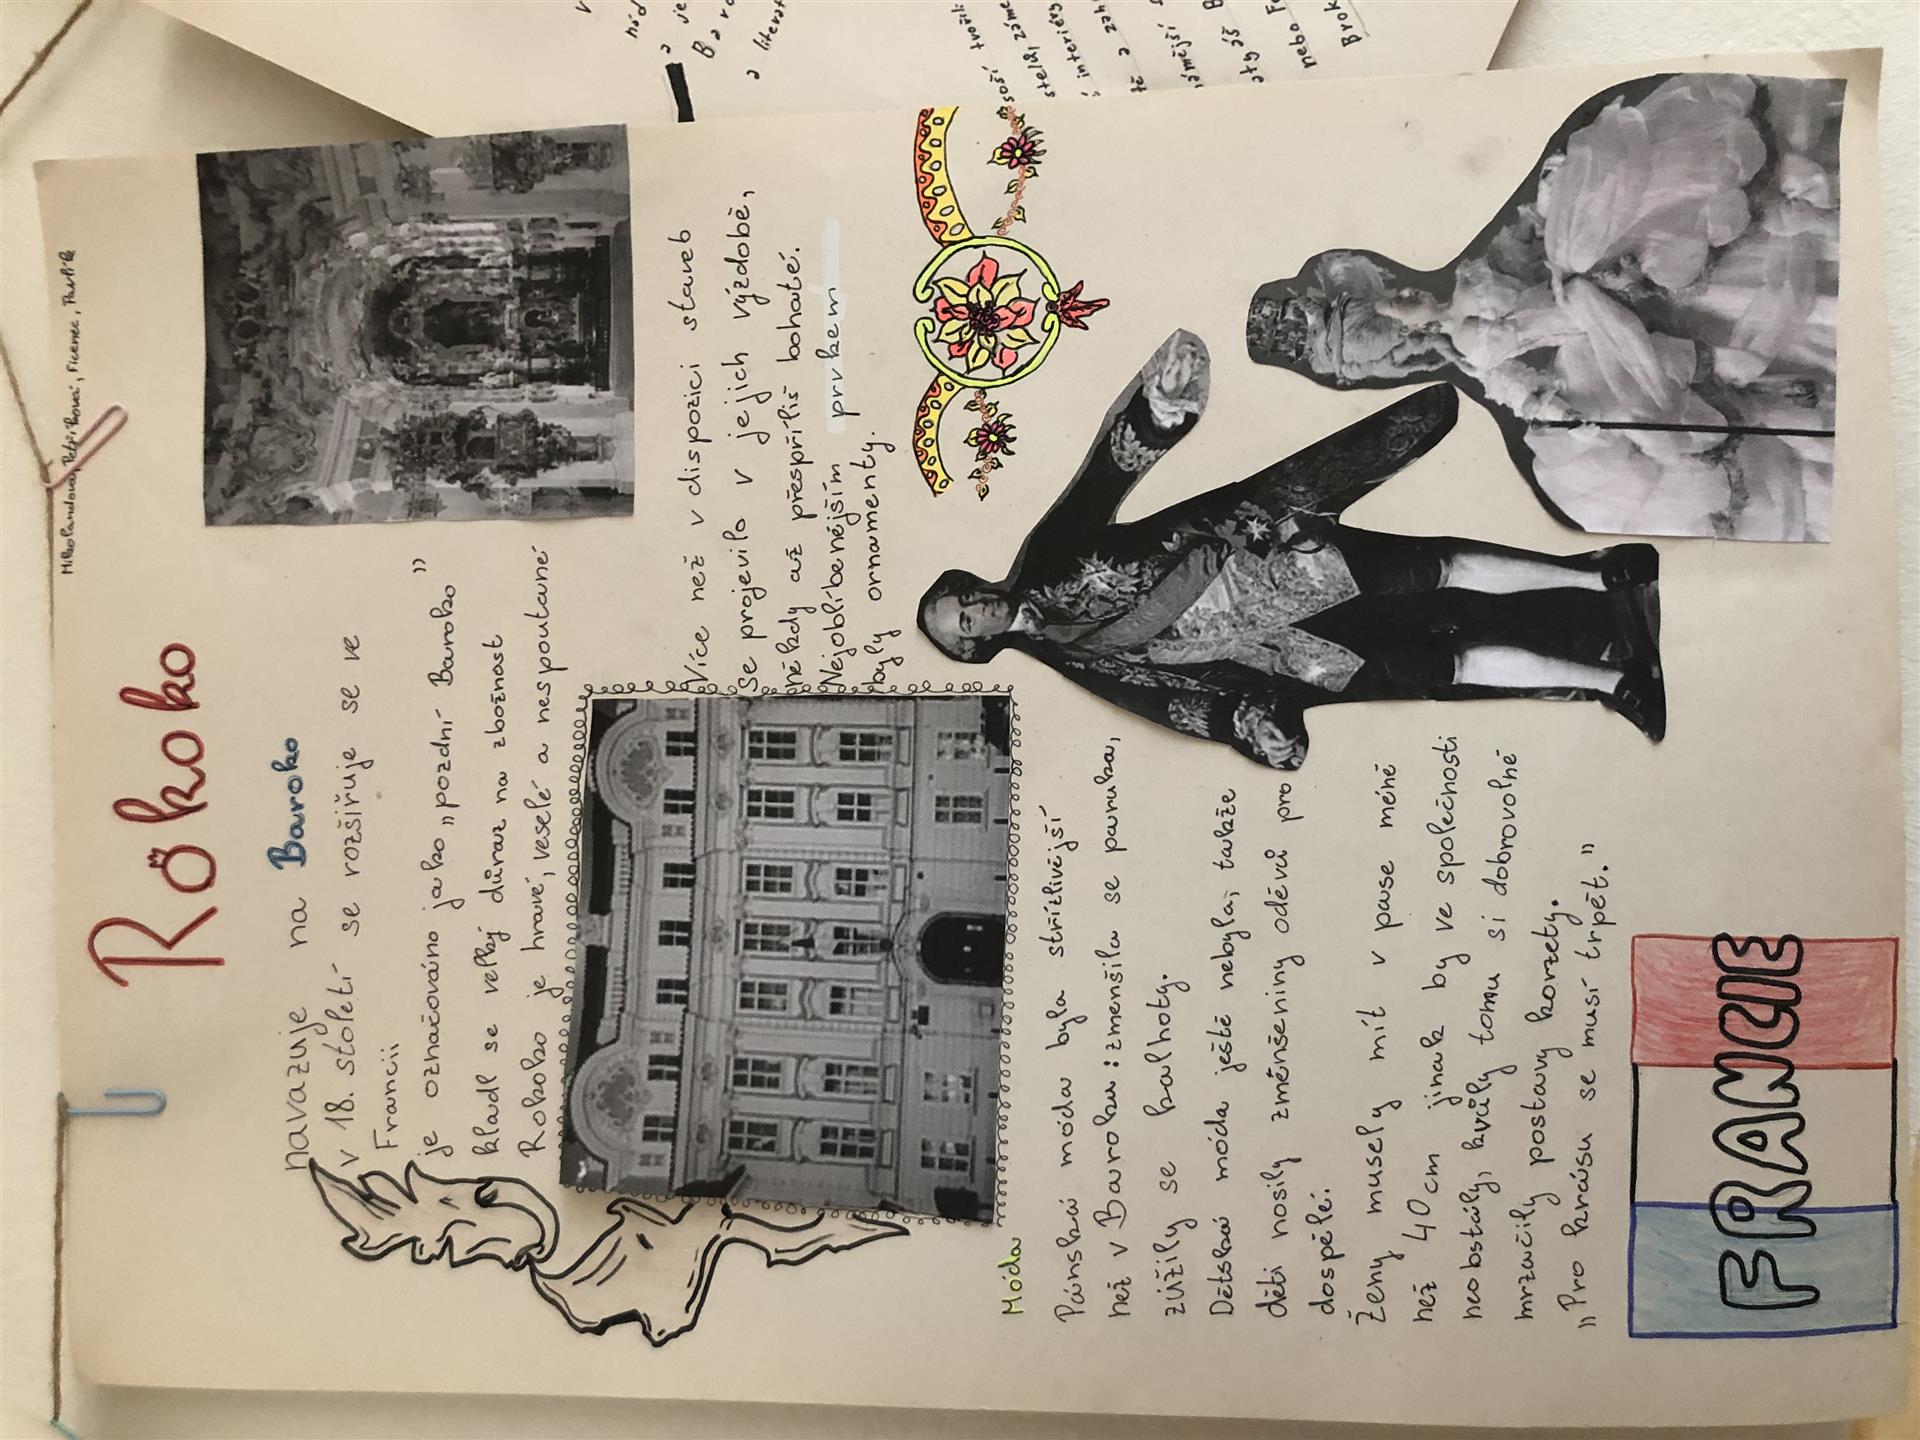 Mikolandová, Petříková, Ficenec, Pavlík
Rokoko
navazuje na Baroko
v 18. století se rozšiřuje se ve
Francii
je označováno jako „pozdní Baroko”
kladl se velký důraz na zbožnost
Rokoko je hravé, veselé a nespoutané
Více než v dispozici staveb
se projevilo v jejich výzdobě,
někdy až přespříliš bohaté.
Nejoblíbenějším prvkem
byly ornamenty.
Móda
Pánská móda byla střízlivější
než v Baroku: zmenšila se paruka,
zúžily se kalhoty.
Dětská móda ještě nebyla, takže
děti nosily změnšeniny oděvů pro
dospělé.
Ženy musely mít v pase méně
než 40cm jinak by ve společnosti
neobstály, kvůly tomu si dobrovolně
mrzačily postavy korzety.
„Pro krásu se musí trpět.”
FRANCIE
a je
Baro
a literat
soší tvořili
interiéry
nebo Fe
Brok